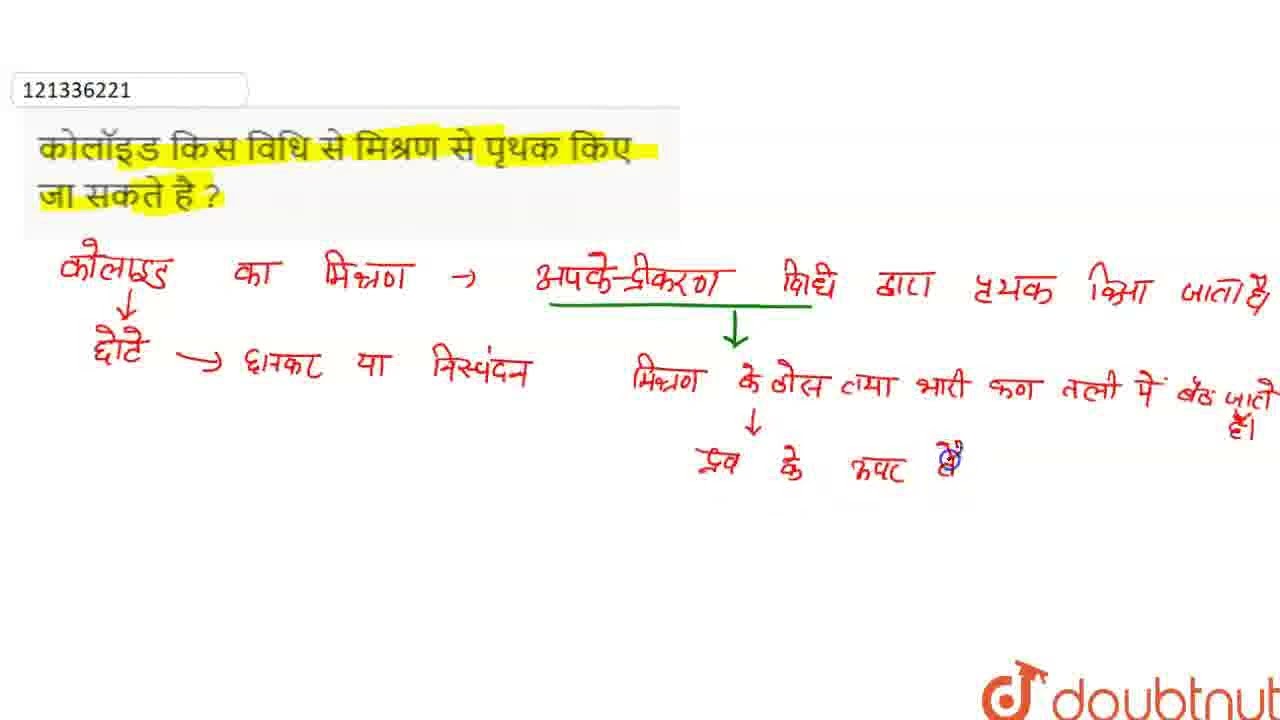 121336221
कोलॉइड किस विधि से मिश्रण से पृथक किए
जा सकते है ?
कोलाइड का मिश्रण → अपकेन्द्रीकरण विधि द्वारा पृथक किया जाता है।
↓
छोटे → छानकर या निस्यंदन
↓
मिश्रण के ठोस तथा भारी कण तली में बैठ जाते
हैं।
↓
द्रव के ऊपर
doubtnut